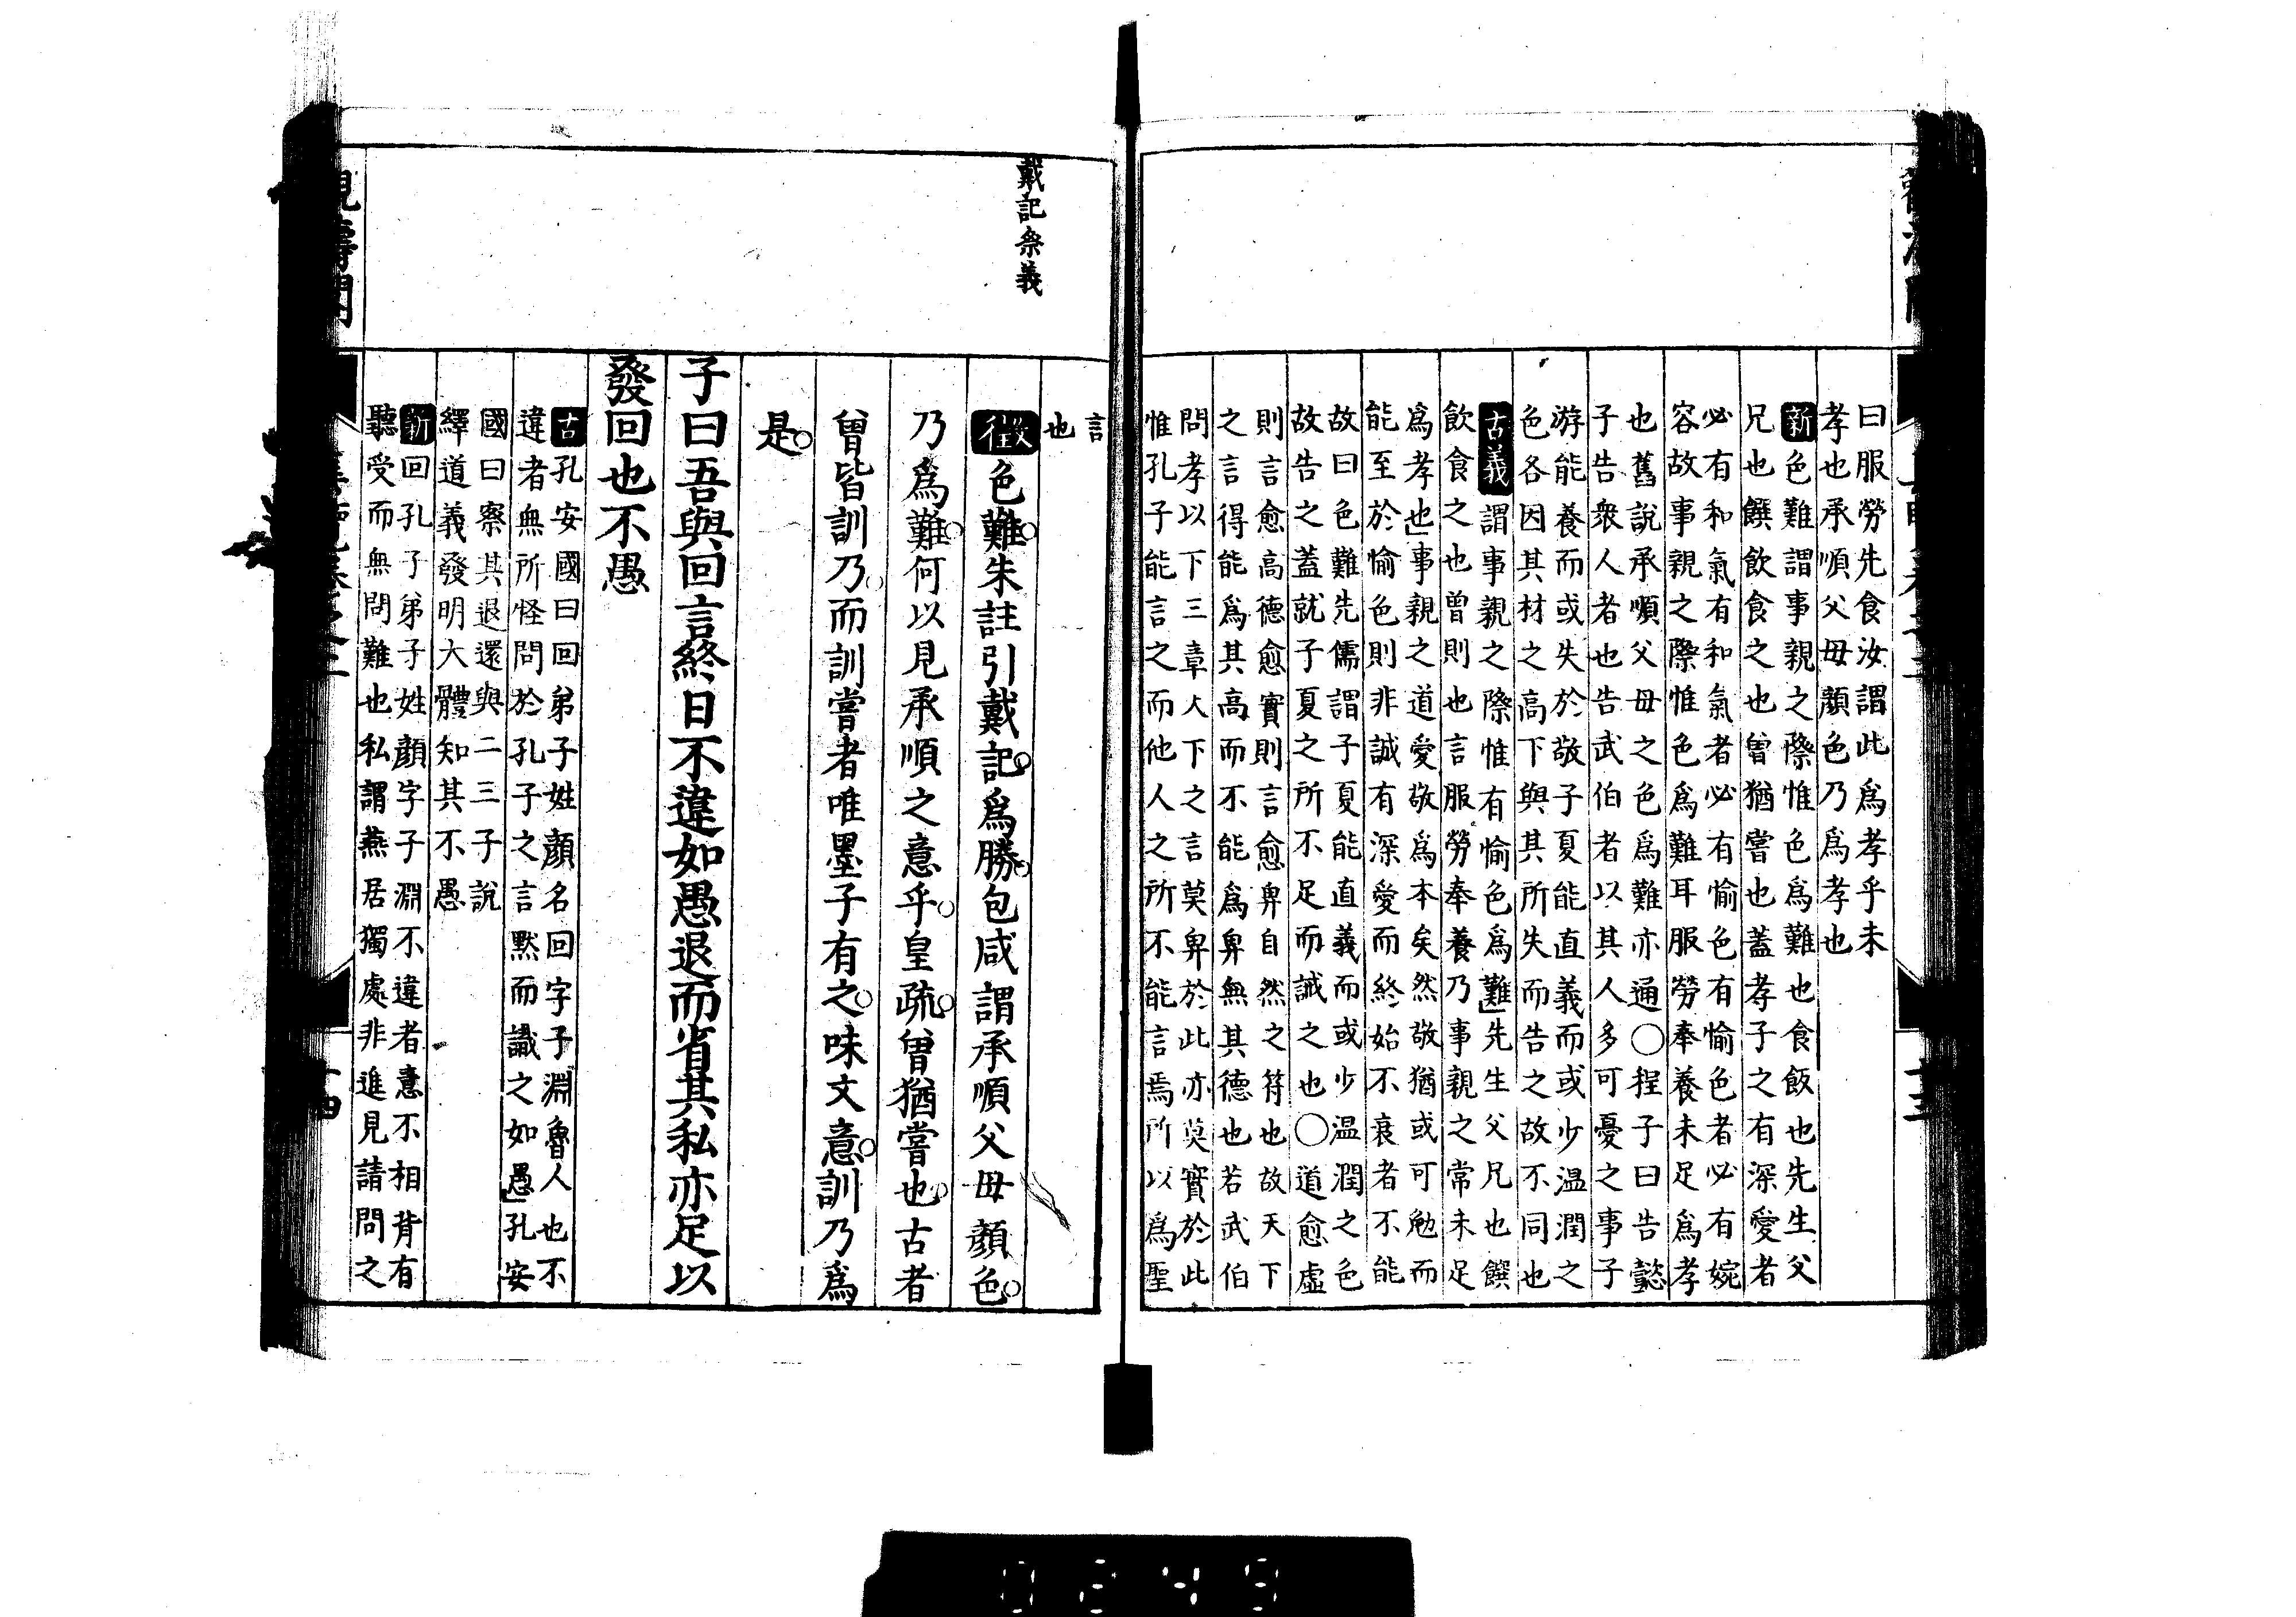 曰服勞先食汝謂此爲孝乎未
孝也承順父母顏色乃爲孝也
新色難謂事親之際惟色爲難也食飯也先生父
兄也饌飲食之也曾猶嘗也蓋孝子之有深愛者
必有和氣有和氣者必有愉色有愉色者必有婉
容故事親之際惟色爲難耳服勞奉養未足爲孝
也舊說承順父母之色爲難亦通○程子曰告懿
子告衆人者也告武伯者以其人多可憂之事子
游能養而或失於敬子夏能直義而或少温潤之
色各因其材之高下與其所失而告之故不同也
古義謂事親之際惟有愉色爲難先生父兄也饌
飲食之也曾則也言服勞奉養乃事親之常未足
爲孝也事親之道愛敬爲本矣然敬猶或可勉而
能至於愉色則非誠有深愛而終始不衰者不能
故曰色難先儒謂子夏能直義而或少温潤之色
故告之蓋就子夏之所不足而誡之也○道愈虛
則言愈高德愈實則言愈卑自然之符也故天下
之言得能爲其高而不能爲卑卑無其德也若武伯
問孝以下三章人下之言莫卑於此亦莫實於此
惟孔子能言之而他人之所不能言焉所以爲聖
言
也
戴記祭義
徵色難朱註引戴記爲勝包咸謂承順父母顏色
乃爲難何以見承順之意乎皇疏曾猶嘗也古者
曾皆訓乃而訓嘗者唯墨子有之味文意訓乃爲
是
子曰吾與回言終日不違如愚退而省其私亦足以
發回也不愚
古孔安國曰回弟子姓顏名回字子淵魯人也不
違者無所怪問於孔子之言默而識之如愚孔安
國曰察其退還與二三子說
繹道義發明大體知其不愚
新回孔子弟子姓顏字子淵不違者意不相背有
聽受而無問難也私謂燕居獨處非進見請問之